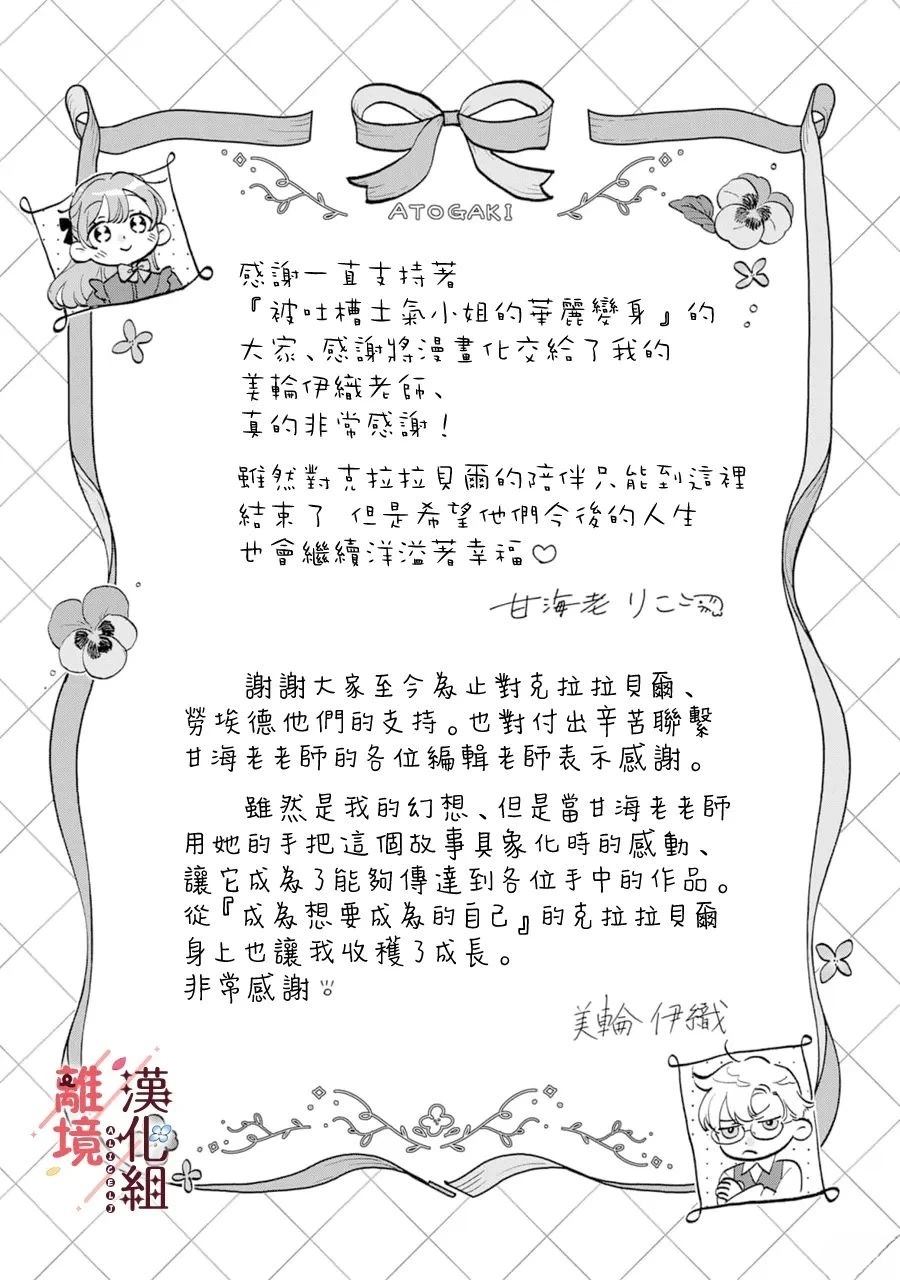 ATOGAKI
感謝一直支持著
『被吐槽土氣小姐的華麗變身』的
大家、感謝將漫畫化交給了我的
美輪伊織老師、
真的非常感謝！
雖然對克拉拉貝爾的陪伴只能到這裡
結束了 但是希望他們今後的人生
也會繼續洋溢著幸福♡
甘海老りこ
謝謝大家至今為止對克拉拉貝爾、
勞埃德他們的支持。也對付出辛苦聯繫
甘海老老師的各位編輯老師表示感謝。
雖然是我的幻想、但是當甘海老老師
用她的手把這個故事具象化時的感動、
讓它成為了能夠傳達到各位手中的作品。
從『成為想要成為的自己』的克拉拉貝爾
身上也讓我收穫了成長。
非常感謝
美輪 伊織
離境
漢化組
ALICELJ